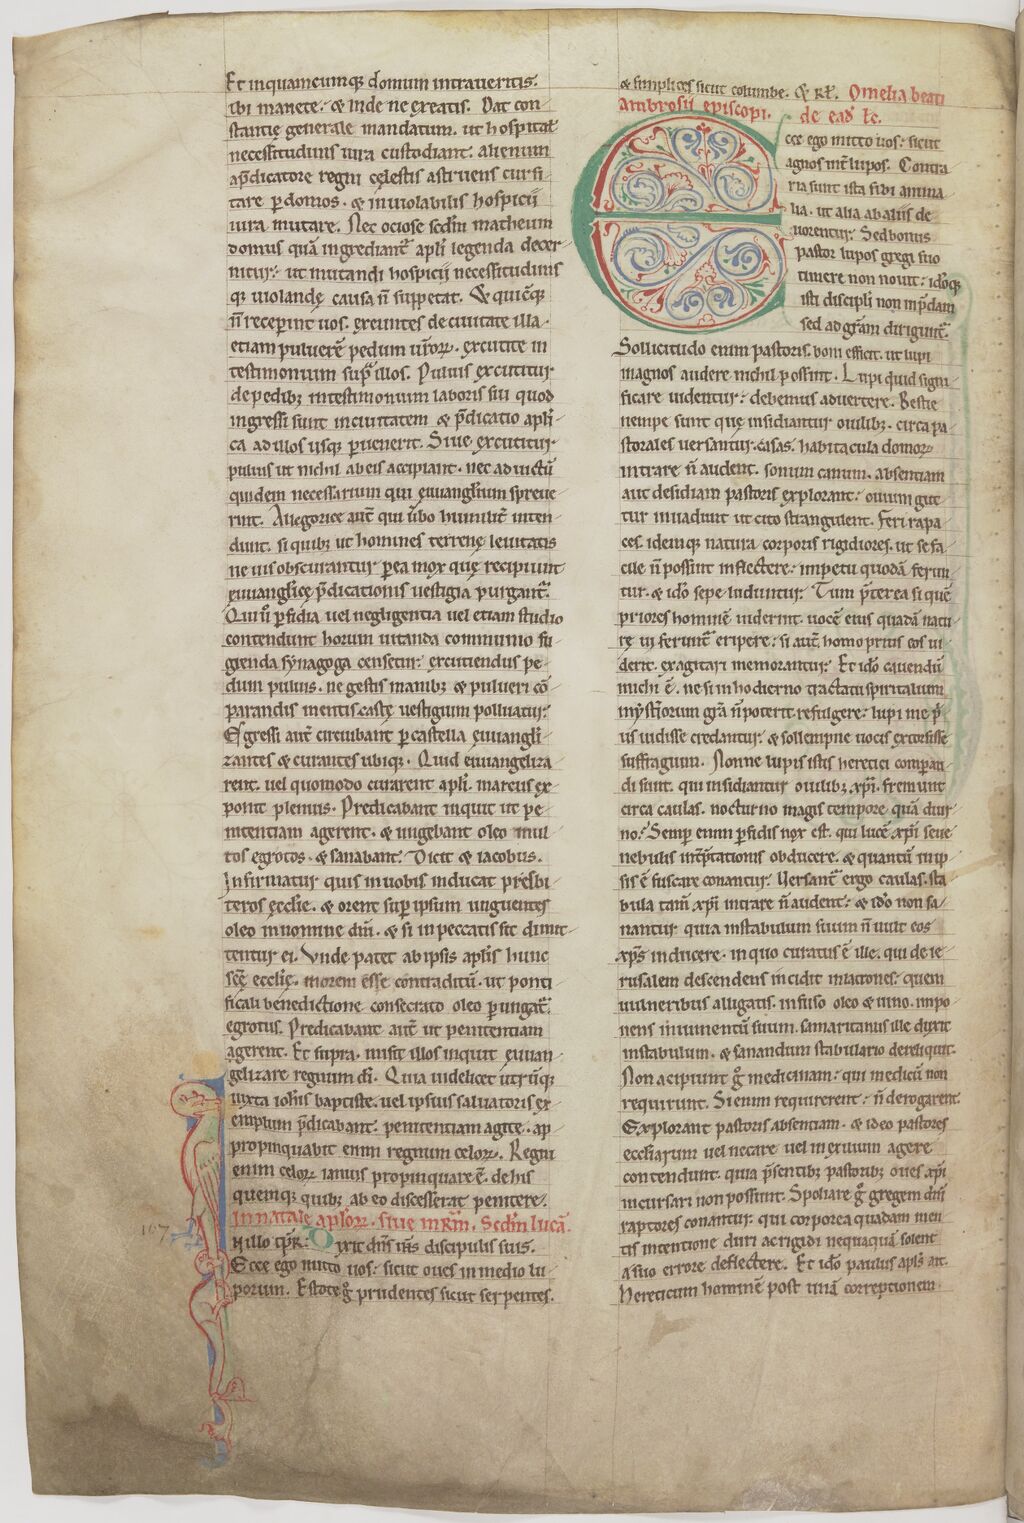 Et inquamcumq; domum intraveritis.
ibi manete. & inde ne exeatis. Dat con-
stantie generale mandatum. ut hospital
necessitudinis iura custodiant. alienum
a p̄dicatore regni cęlestis astruens cursi-
tare p domos. & inviolabilis hospicii
iura mutare. Nec ociose scdm matheum
domus quā ingrediant apli legenda decer-
nitur. ut mutandi hospicii necessitudinis
q; violandę causa n̄ suppetat. & quicq;
n̄ receperint vos. exeuntes de civitate illa.
etiam pulverē pedum vrorum. excutite in
testimonium sup illos. Pulvis excutitur
de pedib; in testimonium laboris sui quod
ingressi sunt in civitatem & p̄dicatio apli-
ca ad illos usq; pervenerit. Sive excutitur
pulvis ut nichil ab eis accipiant. nec ad victū
quidem necessarium qui evvanglium spreve-
rint. Allegorice aut qui vbo humilit inten-
dunt. si quib; ut homines terrenę levitatis
nevis obscurantur p ea mox quę recipiunt
evvanglicę p̄dicationis vestigia purgant.
Qui v̄ pfidia vel negligentia vel etiam studio
contendunt horum vitanda communio fu-
gienda synagoga censetur. excutiendus pe-
dum pulvis. ne gestis manib; & pulveri cō-
parandis mentis castę vestigium polluatur.
Egressi aut circuibant p castella evvangli-
zantes & curantes ubiq;. Quid evvangeliza-
rent. vel quomodo curarent apli. marcus ex-
ponit plenius. Predicabant inquit ut pe-
nitentiam agerent. & ungebant oleo mul-
tos egrotos. & sanabant. Dicit & iacobus.
Infirmatur quis in vobis inducat presbi-
teros ecclie. & orent sup ipsum unguentes
oleo in nomine dni. & si in peccatis sit dimit-
tentur ei. Unde patet ab ipsis aplis hunc
scę ecclię. morem esse contraditū. ut ponti-
ficali benedictione consecrato oleo pungat.
egrotus. Predicabant aut ut penitentiam
agerent. Et supra. misit illos inquit evvan-
gelizare regnum di. Quia videlicet utrūq;
iuxta iohis baptiste. vel ipsius salvatoris ex-
emplum p̄dicabant. penitentiam agite. ap-
propinquabit enim regnum celorum. Regni
enim celorum ianuis propinquare ē. de his
quemq; quib; ab eo discesserat penitere.
In natale aplorum. Scdm lucā.
In illo tpr. Dixit dns ihs discipulis suis.
Ecce ego mitto vos. sicut oves in medio lu-
porum. Estote g prudentes sicut serpentes.
167
& simplices sicut columbe. & Rł. Omelia beati
Ambrosii episcopi. de ead łc.
Ecce ego mitto vos. sicut
agnos int lupos. Contra-
ria sunt ista sibi anima-
lia. ut alia ab aliis de-
vorentur. Sed bonus
pastor lupos gregi suo
timere non novit. idoq;
isti discipli non in p̄dam
sed ad grām dirigunt.
Sollicitudo enim pastoris boni efficit. ut lupi
in agnos audere nichil possint. Lupi quid signi-
ficare videntur. debemus advertere. Bestie
nempe sunt quę insidiantur ovilib;. circa pa-
storales versantur casas. habitacula domorum
intrare n̄ audent. sonum canum. absentiam
aut desidiam pastoris explorant. ovium gut-
tur invadunt ut cito strangulent. Feri rapa-
ces. idemq; natura corporis rigidiores. ut se fa-
cile n̄ possint inflectere. impetu quodā ferun-
tur. & ido sepe luduntur. Tum p̄terea si quē
priores hominē viderint. vocē eius quadā natu-
rę vi ferunt eripere. si aut homo prius eos vi-
derit. exagitari memorantur. Et ido cavendū
michi ē. ne si in hodierno tractatu spiritalium
mysteriorum gra n̄ poterit refulgere. lupi me p-
us vidisse credantur. & sollempne vocis extorsisse
suffragium. Nonne lupis istis heretici comparan-
di sunt. qui insidiantur ovilib; xpi. fremunt
circa caulas. nocturno magis tempore quā diur-
no. Semp enim pfidis nox est. qui lucē xpi seve
nebulis intptationis obducere. & quantū in ip-
sis ē fuscare conantur. Versant ergo caulas. sta-
bula tam xpi intrare n̄ audent. & ido non sa-
nantur quia in stabulum suum n̄ vult eos
xps inducere. in quo curatus ē ille. qui de ie-
rusalem descendens incidit in latrones. quem
vulneribus alligatis. infuso oleo & vino. impo-
nens in iumentū suum. samaritanus ille duxit
in stabulum. & sanandum stabulario dereliquit.
Non accipiunt g medicinam. qui medicū non
requirunt. Si enim requirerent. n̄ derogarent.
Explorant pastoris absentiam. & ideo pastores
ecclarium vel necare vel in exilium agere
contendunt. quia p̄sentib; pastorib; oves xpi
incursari non possunt. Spoliare g gregem dni
raptores conantur. qui corporea quadam men-
tis intentione duri ac rigidi nequaquā solent
a suo errore deflectere. Et ido paulus apls ait.
Hereticum hominē post unā correptionem